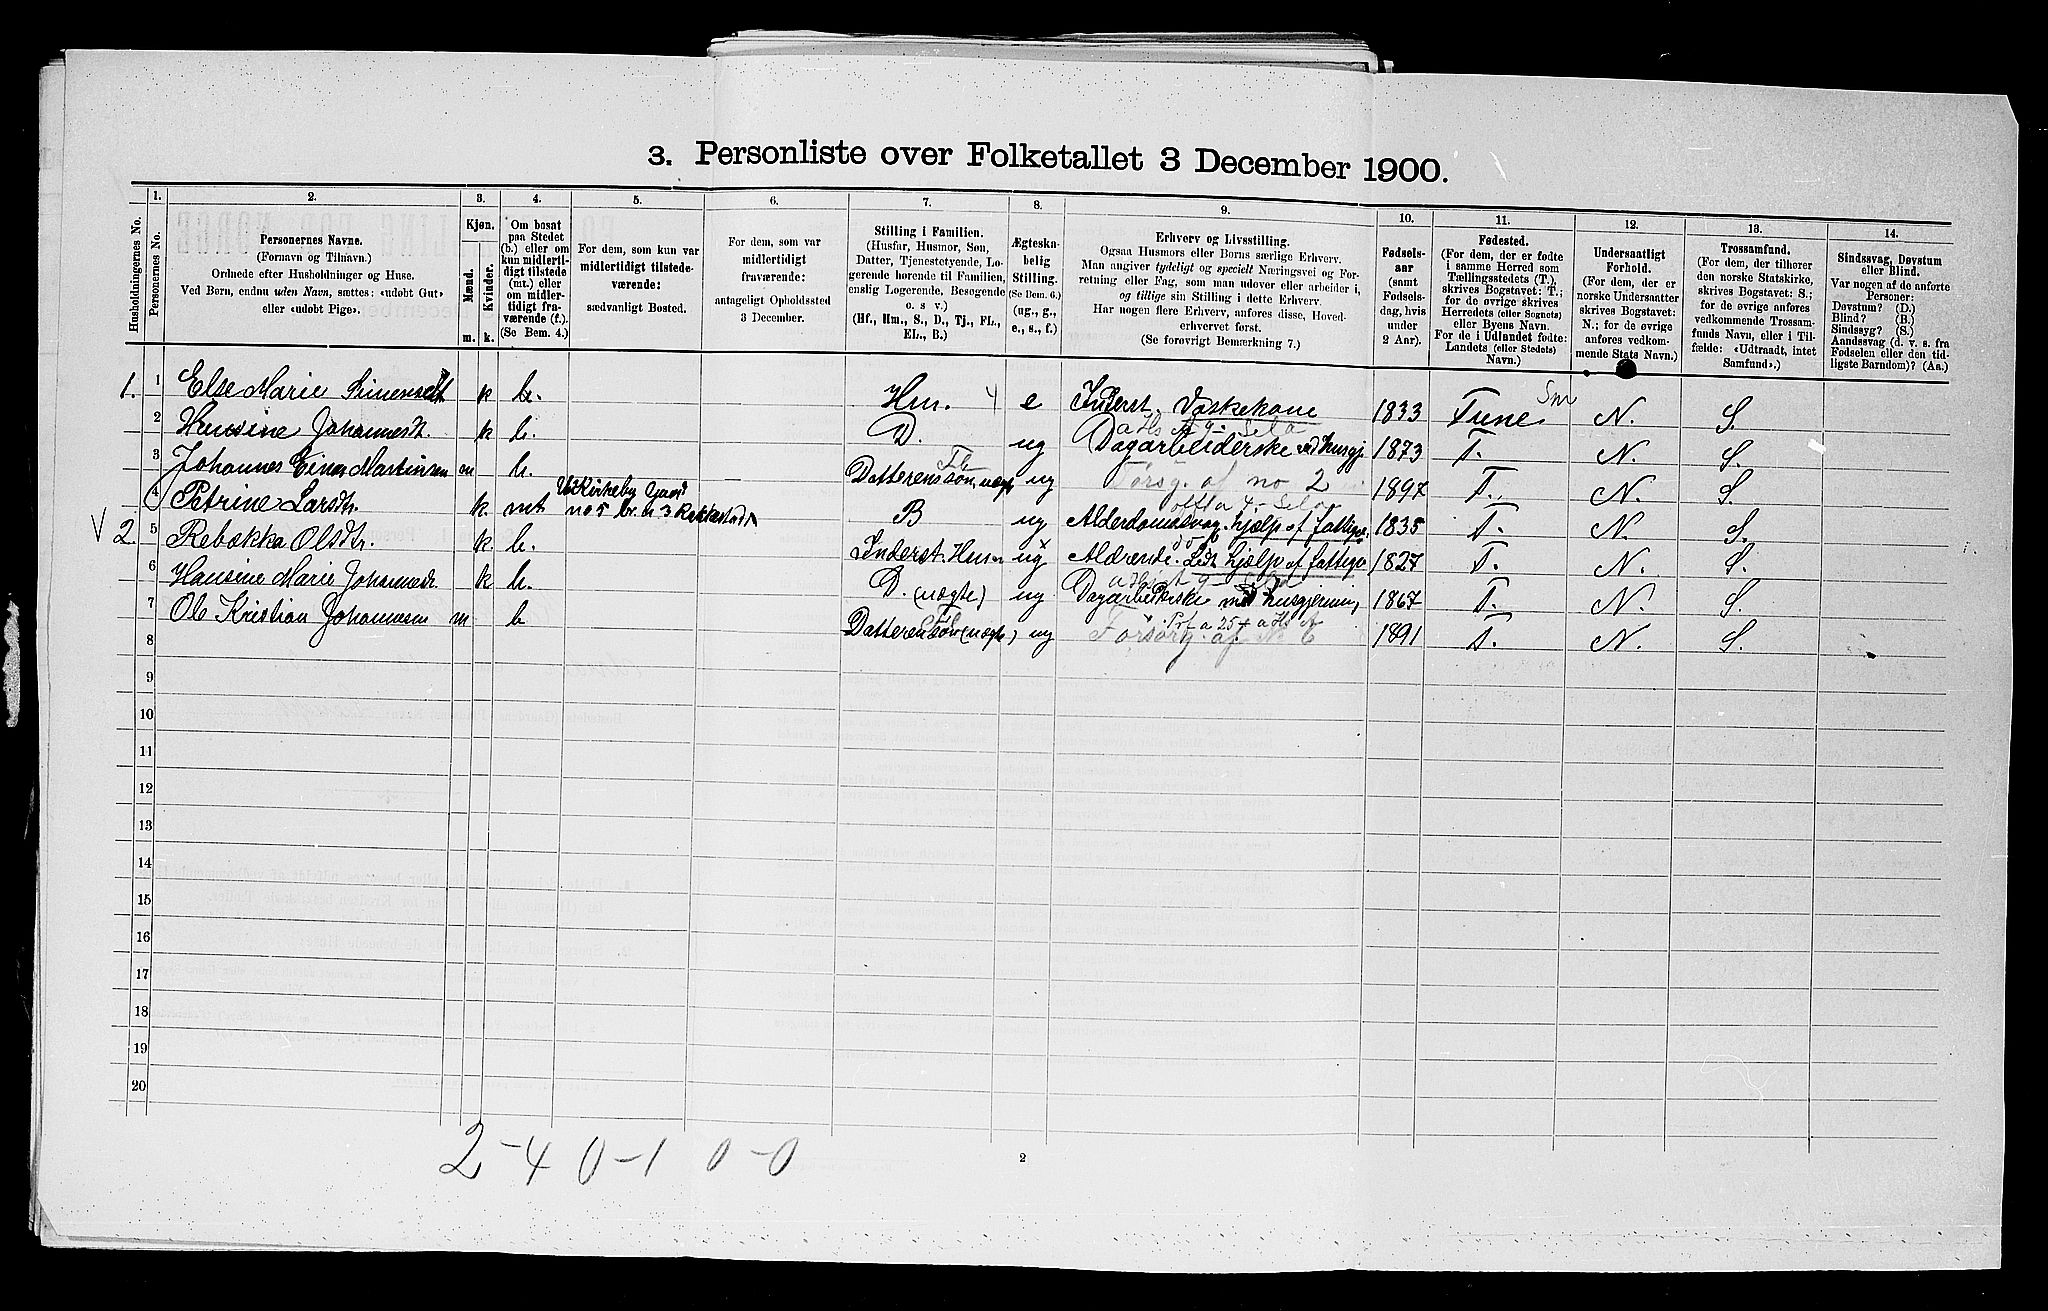 3. Personliste over Folketallet 3 December 1900.
Husholdningernes No.
1.
Personernes No.
2.
Personernes Navne.
(Fornavn og Tilnavn.)
Ordnede efter Husholdninger og Huse.
Ved Børn, endnu uden Navn, sættes: «udøbt Gut»
eller «udøbt Pige».
3.
Kjøn.
Mænd.
Kvinder.
m.
k.
4.
Om bosat
paa Stedet
(b.) eller om
kun midlerti-
digt tilstede
(mt.) eller
om midler-
tidigt fra-
værende (f.).
(Se Bem. 4.)
5.
For dem, som kun var
midlertidigt tilstede-
værende:
sædvanligt Bosted.
6.
For dem, som var
midlertidigt
fraværende:
antageligt Opholdssted
3 December.
7.
Stilling i Familien.
(Husfar, Husmor, Søn,
Datter, Tjenestetyende, Lo-
gerende hørende til Familien,
enslig Logerende, Besøgende
o. s. v.)
(Hf., Hm., S., D., Tj., FL.,
EL., B.)
8.
Ægteska-
belig
Stilling.
(Se Bem. 6.)
(ug., g.,
e., s., f.)
9.
Erhverv og Livsstilling.
Ogsaa Husmors eller Børns særlige Erhverv.
Man angiver tydeligt og specielt Næringsvei og For-
retning eller Fag, som man udøver eller arbeider i,
og tillige sin Stilling i dette Erhverv.
Har nogen flere Erhverv, anføres disse, Hoved-
erhvervet først.
(Se forøvrigt Bemærkning 7.)
10.
Fødsels-
aar
(samt
Fødsels-
dag, hvis
under
2 Aar).
11.
Fødested.
(For dem, der er fødte
i samme Herred som
Tællingsstedets (T.),
skrives Bogstavet: T.;
for de øvrige skrives
Herredets (eller Sognets)
eller Byens Navn.
For de i Udlandet fødte:
Landets (eller Stedets)
Navn.)
12.
Undersaatligt
Forhold.
(For dem, der er
norske Undersaatter
skrives Bogstavet:
N.; for de øvrige
anføres vedkom-
mende Stats Navn.)
13.
Trossamfund.
(For dem, der tilhører
den norske Statskirke,
skrives Bogstavet: S.;
for de øvrige anføres
vedkommende Trossam-
funds Navn, eller i Til-
fælde: «Udtraadt, intet
Samfund».)
14.
Sindssvag, Døvstum
eller Blind.
Var nogen af de anførte
Personer:
Døvstum? (D.)
Blind? (B.)
Sindssyg? (S.)
Aandssvag (d. v. s. fra
Fødselen eller den tid-
ligste Barndom)? (Aa.)
1. 1 Else Marie k b. Hm. 4 e Inderst, Vaskekone 1833 Tune N. S.
2 Hansine Johannesdt. k b. D. ug Dagarbeiderske ved husgj 1873 T. N. S.
3 Johannes Einar Martinsen m b. Datterens søn, uægte ug Forsg. af no 2 1897 T. N. S.
4 Petrine Larsdtr. k mt Kirkeby
no 5 br. n 3 B ug Alderdomssvag, hjælp af fattigv. 1835 T. S.
V 2. 5 Rebekka Olsdtr. k. b. Inderst. Hm ug hjælp af fattigv 1827 T. N. S.
6 Hansine Marie Johannesdt. k b. D. (uægte) ug Dagarbeiderske med husgjerning 1867 T. N. S.
7 Ole Kristian Johannesen m b Datterens søn (uægte) ug Forsørg. af No 6 1891 T. N. S.
8
9
10
11
12
13
14
15
16
17
18
19
20
2-4 0-1 0-0
2